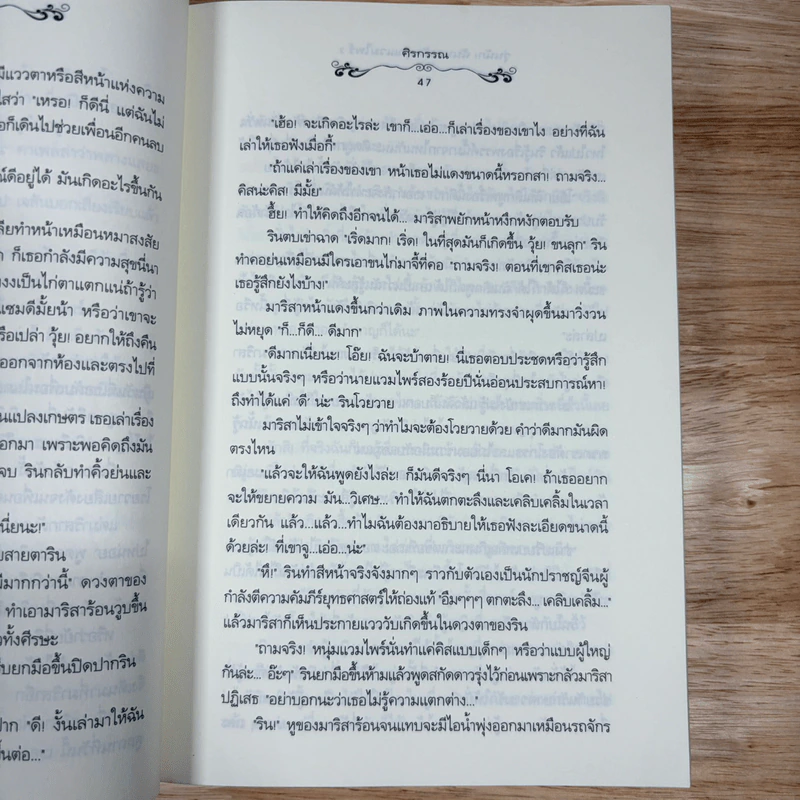 มีแววตาหรือสีหน้าแห่งความ
ใสว่า "เหรอ! ก็ดีนี่ แต่ฉันไม่
อก็เดินไปช่วยเพื่อนอีกคนลบ
ณ์ดีอยู่ได้ มันเกิดอะไรขึ้นกัน
ลียทำหน้าเหมือนหมาสงสัย
ก็เธอกำลังมีความสุขนี่นา
งงเป็นไก่ตาแตกแน่ถ้ารู้ว่า
แซมดีมั้ยน้า หรือว่าเขาจะ
รือเปล่า วุ้ย! อยากให้ถึงคืน
ออกจากห้องและตรงไปที่
นแปลงเกษตร เธอเล่าเรื่อง
อกมา เพราะพอคิดถึงมัน
จบ รินกลับทำคิ้วย่นและ
นี่ยนะ!"
บสายตาริน
มีมากกว่านี้" ดวงตาของ
ทำเอามาริสาร้อนวูบขึ้น
วทั้งศีรษะ
บยกมือขึ้นปิดปากริน
ปาก "ดี! งั้นเล่ามาให้ฉัน
ขึ้นต่อ..."
ศิรกรรณ
47
"เฮ้อ! จะเกิดอะไรล่ะ เขาก็...เอ่อ...ก็เล่าเรื่องของเขาไง อย่างที่ฉัน
เล่าให้เธอฟังเมื่อกี้"
"ถ้าแค่เล่าเรื่องของเขา หน้าเธอไม่แดงขนาดนี้หรอกสา! ถามจริง...
คิสน่ะคิส! มีมั้ย"
ฮึ้ย! ทำให้คิดถึงอีกจนได้... มาริสาพยักหน้าหงึกหงักตอบรับ
รินตบเข่าฉาด "เริ่ดมาก! เริ่ด! ในที่สุดมันก็เกิดขึ้น วุ้ย! ขนลุก" ริน
ทำคอย่นเหมือนมีใครเอาขนไก่มาจี้ที่คอ "ถามจริง! ตอนที่เขาคิสเธอน่ะ
เธอรู้สึกยังไงบ้าง!"
มาริสาหน้าแดงขึ้นกว่าเดิม ภาพในความทรงจำผุดขึ้นมาวิ่งวน
ไม่หยุด "ก็...ก็ดี... ดีมาก"
"ดีมากเนี่ยนะ! โอ๊ย! ฉันจะบ้าตาย! นี่เธอตอบประชดหรือว่ารู้สึก
แบบนั้นจริงๆ หรือว่านายแวมไพร์สองร้อยปีนั่นอ่อนประสบการณ์หา!
ถึงทำได้แค่ 'ดี' น่ะ" รินโวยวาย
มาริสาไม่เข้าใจจริงๆ ว่าทำไมจะต้องโวยวายด้วย คำว่าดีมากมันผิด
ตรงไหน
"แล้วจะให้ฉันพูดยังไงล่ะ! ก็มันดีจริงๆ นี่นา โอเค! ถ้าเธออยาก
จะให้ขยายความ มัน...วิเศษ... ทำให้ฉันตกตะลึงและเคลิบเคลิ้มในเวลา
เดียวกัน แล้ว...แล้ว...ทำไมฉันต้องมาอธิบายให้เธอฟังละเอียดขนาดนี้
ด้วยล่ะ! ที่เขาจู...เอ่อ...น่ะ"
"หึ!" รินทำสีหน้าจริงจังมากๆ ราวกับตัวเองเป็นนักปราชญ์จีนผู้
กำลังตีความคัมภีร์ยุทธศาสตร์ให้ถ่องแท้ "อืมๆๆๆ ตกตะลึง... เคลิบเคลิ้ม..."
แล้วมาริสาก็เห็นประกายแวววับเกิดขึ้นในดวงตาของริน
"ถามจริง! หนุ่มแวมไพร์นั่นทำแค่คิสแบบเด็กๆ หรือว่าแบบผู้ใหญ่
กันล่ะ... อ๊ะๆ" รินยกมือขึ้นห้ามแล้วพูดสกัดดาวรุ่งไว้ก่อนเพราะกลัวมาริสา
ปฏิเสธ "อย่าบอกนะว่าเธอไม่รู้ความแตกต่าง..."
"ริน!" หูของมาริสาร้อนจนแทบจะมีไอน้ำพุ่งออกมาเหมือนรถจักร